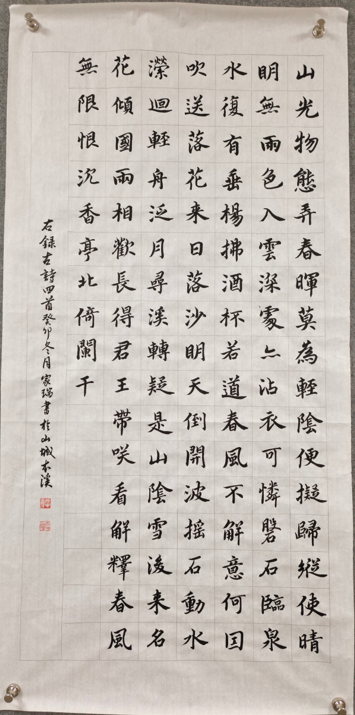 山光物態弄春暉莫為輕陰便擬歸縱使晴
明無雨色入雲深處亦沾衣可憐磐石臨泉
水復有垂楊拂酒杯若道春風不解意何因
吹送落花来日落沙明天倒開波搖石動水
瀠迴輕舟泛月尋溪轉疑是山陰雪後来名
花傾國兩相歡長得君王帶咲看解釋春風
無限恨沉香亭北倚闌干
右錄古詩四首癸卯冬月家瑞書於山城本溪